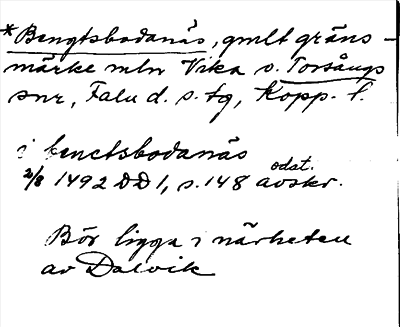 *Bengtsbodanäs, gmlt gräns-
märke mln Vika o. Torsångs
snr, Falu d. s. tg, Kopp. l.
i benctsbodanäs
2/8 1492 DD 1, s. 148 odat. avskr.
Bör ligga i närheten
av Dalvik